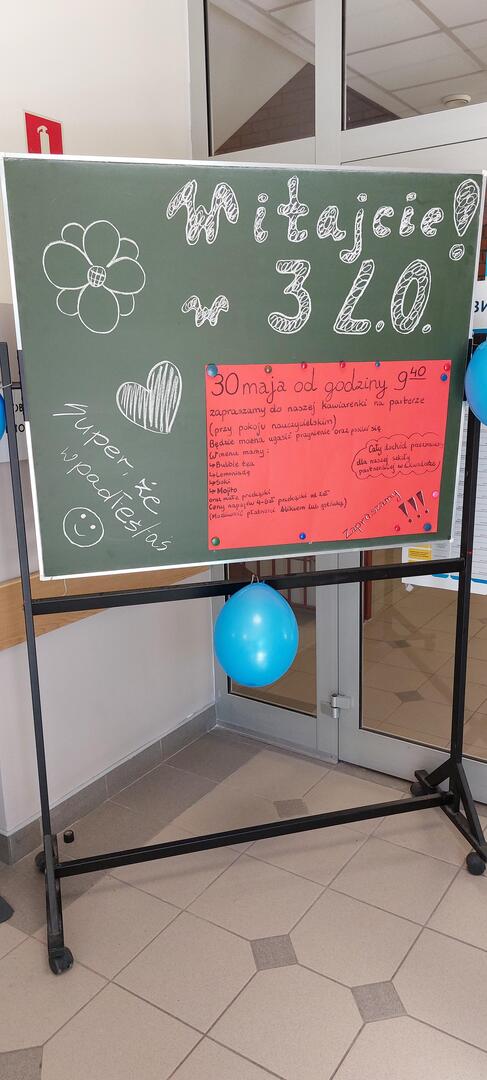 Witajcie!
w 3 L.O.
Super że
wpadłeś/aś
30 maja od godziny 9⁴⁰
zapraszamy do naszej kawiarenki na parterze
(przy pokoju nauczycielskim)
Będzie można ugasić pragnienie oraz posilić się
W menu mamy:
↳ Bubble tea
↳ Lemoniadę
↳ Soki
↳ Mojito
oraz małe przekąski
Ceny napojów 4-6zł przekąski od 2zł
(Możliwość płatności blikiem lub gotówką)
Cały dochód przeznaczamy
dla naszej szkoły
partnerskiej w
Zapraszamy!!!